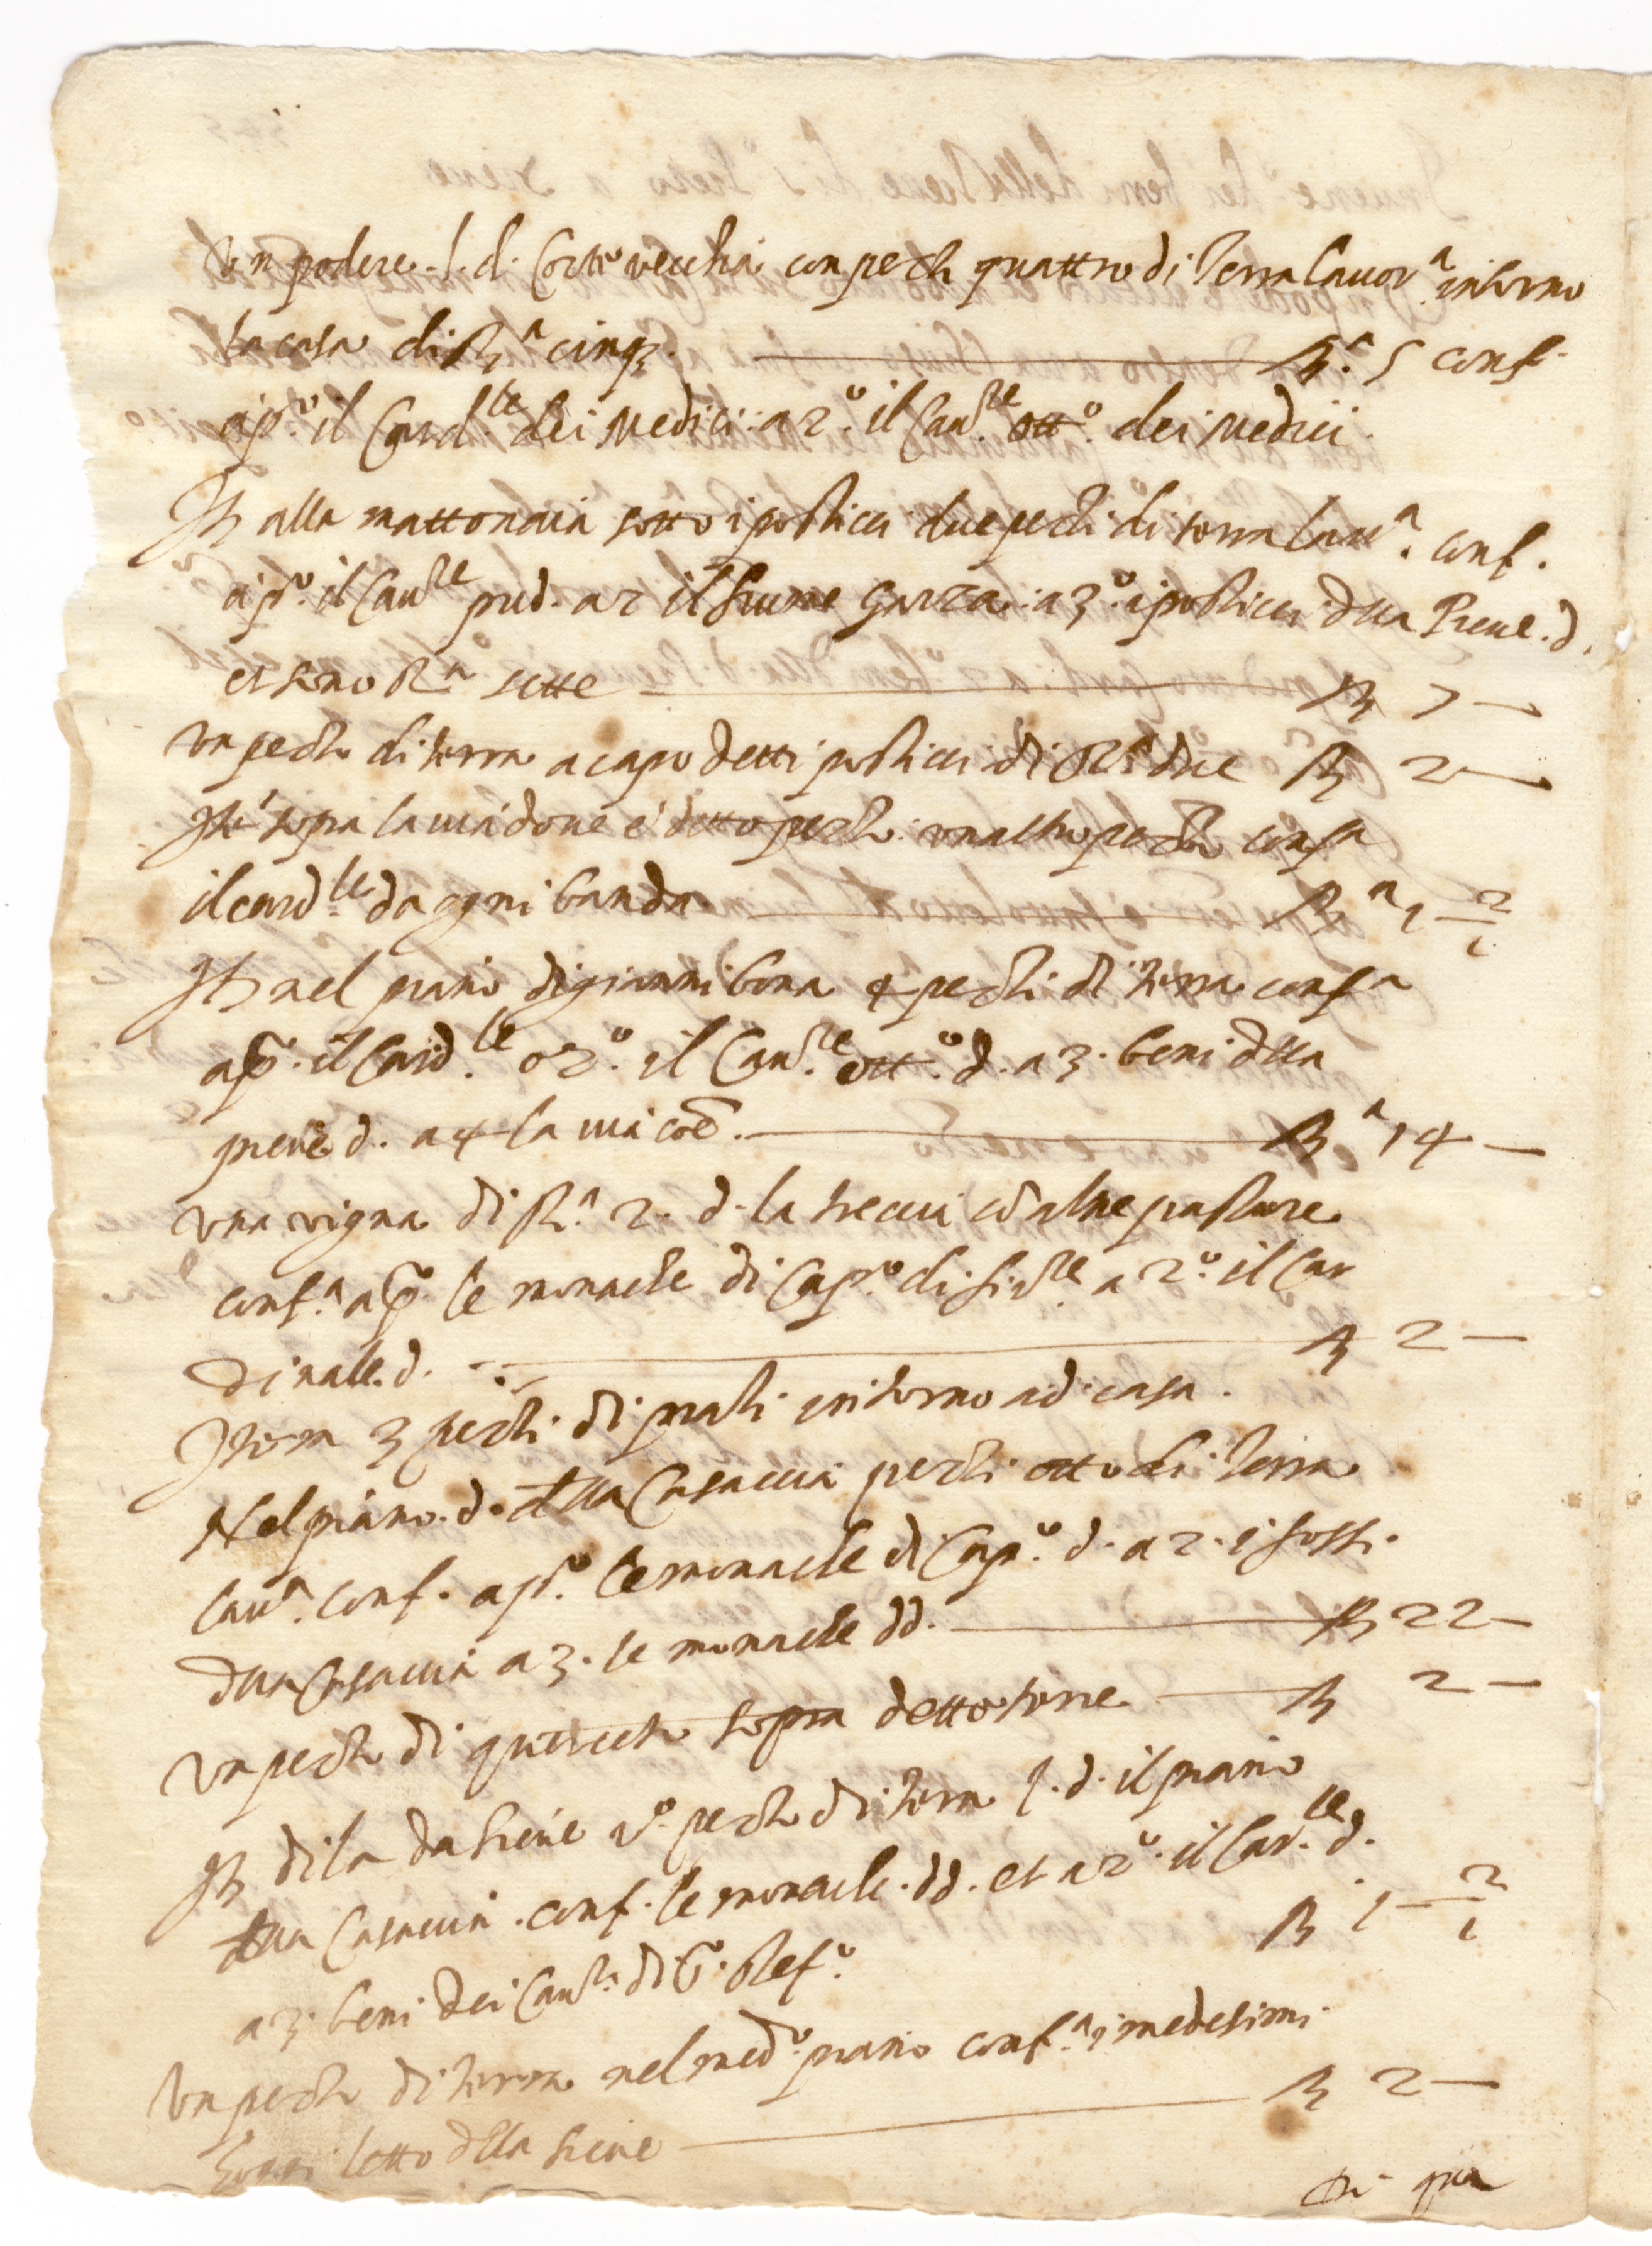 Un podere l. d. Corte vecchia con pezzi quattro di terra lavor.ª intorno
la casa di St.ª cinq. St.ª 5 conf.
a p.º il Card.le dei Medici a 2.º il Cav.re ott.º dei Medici
It. alla mattonaia sotto i posticci due pezzi di terra lav.ª conf.
a p.º il Cav.re pred. a 2 il fiume Garza a 3.º i posticci d.lla Pieve d.
et sono St.ª sette St. 7 —
Un pezzo di terra a capo detti posticci di St.ª due St. 2 —
It. sopra la via dove è detto pezzo un altro pezzo conf.ª
il card.le da ogni banda St.ª 1 — 2/1
It. nel piano di gianni bona 4 pezzi di terra conf.ª
a p.º il Card.le a 2.º il Cav.re ott.º d. a 3. beni d.lla
pieve d. a 4 la via coe. St.ª 14 —
una vigna di St.ª 2. d. la co altre pasture
conf.ª a p.º le monache di Cap.º di a 2.º il Car
dinale d. St. 2 —
Item 3 pezzi di prati intorno a d. casa.
Nel piano d. d.lla Casaccia pezzi otto di terra
lav.ª conf. a p.º le monache di Cap.º d. a 2. i fossi
d.lla Casaccia a 3. le monache dd. St. 22 —
Un pezzo di sopra dette St. 2 —
It. di la da Sieve 1.º pezzo di terra l. d. il piano
d.lla Casaccia conf. le monache dd. et a 2.º il Car.le d.
St. 1 — 2/1
a 3. beni dei Cav.ri di S.º Stef.º
Un pezzo di terra nel med.º piano conf.ª i medesimi
letto d.lla Sieve St. 2 —
Di qua